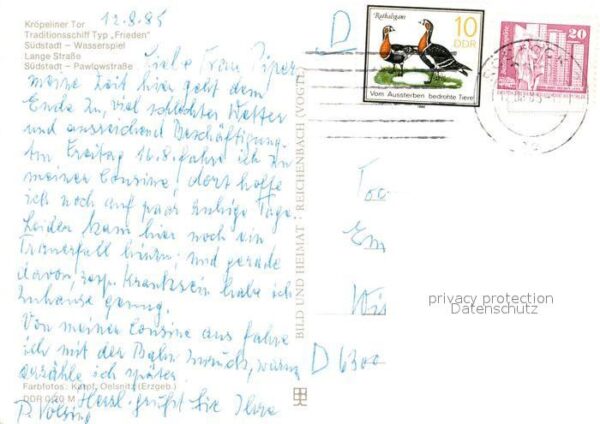 Kröpeliner Tor
Traditionsschiff Typ „Frieden"
Südstadt – Wasserspiel
Lange Straße
Südstadt – Pawlowstraße
12.8.85
Liebe Frau Piper
meine Zeit hier geht dem
Ende zu, viel schlechtes Wetter
und ausreichend Beschäftigung.
Am Freitag 16.8. fahre ich zu
meiner Cousine, dort hoffe
ich noch auf paar ruhige Tage.
Leider kam hier noch ein
Trauerfall hinzu; und gerade
davon, resp. Kranksein habe ich
zuhause genug.
Von meiner Cousine aus fahre
ich mit der Bahn zurück, warum
erzähle ich später.
Herzl. grüßt Sie Ihre
Farbfotos: Oelsnitz (Erzgeb.)
DDR 0,20 M
BILD UND HEIMAT REICHENBACH (VOGTL
D
Rothalsgans
10
DDR
Vom Aussterben bedrohte Tiere
20
privacy protection
Datenschutz
D 6300